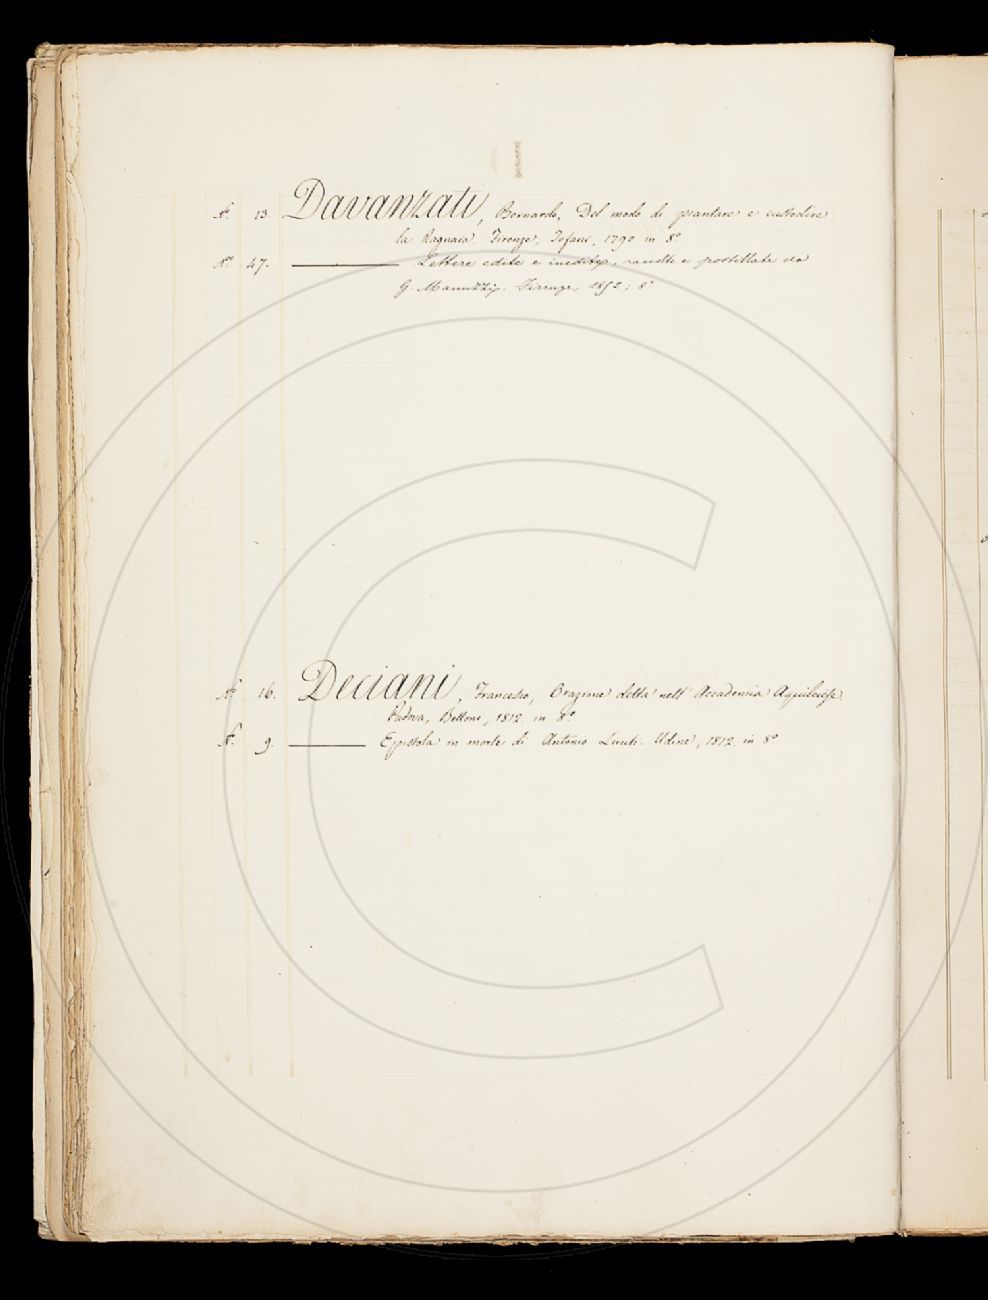 D
N.° 13. Davanzati, Bernardo, Del modo di piantare e custodire
la Ragnaia. Firenze, 1790 in 8°
N.° 47. ——— Lettere edite e inedite, raccolte e postillate da
G. Manuzzi. Firenze, 1852; 8°
N.° 16. Deciani, Francesco, Orazione detta nell' Accademia
Padova, Bettoni, 1812. in 8°
N.° 9. ——— Epistola in morte di Antonio Liruti. Udine, 1812. in 8°